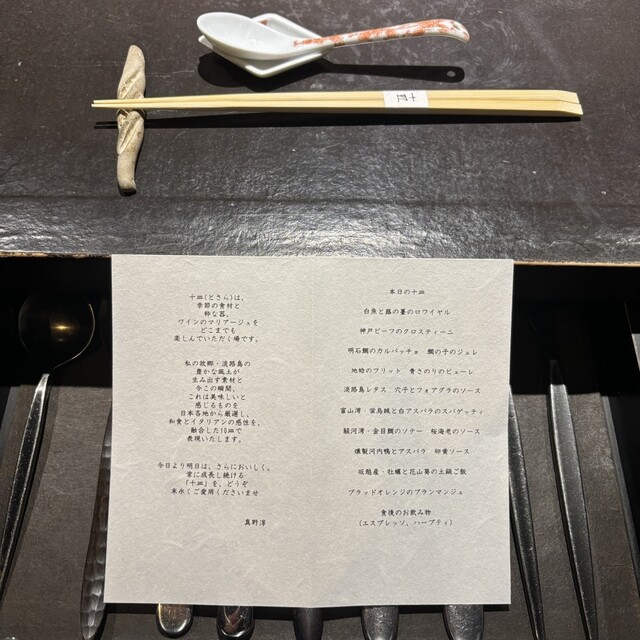 十皿
十皿(とさら)は、
季節の食材と
粋な器、
ワインのマリアージュを
どこまでも
楽しんでいただく場です。
私の故郷・淡路島の
豊かな風土が
生み出す素材と
今この瞬間、
これは美味しいと
感じるものを
日本各地から厳選し、
和食とイタリアンの感性を、
融合した10皿で
表現いたします。
今日より明日は、さらにおいしく。
常に成長し続ける
「十皿」を、どうぞ
末永くご愛用くださいませ
真野淳
本日の十皿
白魚と蕗の薹のロワイヤル
神戸ビーフのクロスティーニ
明石鯛のカルパッチョ 鯛の子のジュレ
地蛤のフリット 青さのりのピューレ
淡路島レタス 穴子とフォアグラのソース
富山湾・蛍烏賊と白アスパラのスパゲッティ
駿河湾・金目鯛のソテー 桜海老のソース
燻製河内鴨とアスパラ 卵黄ソース
坂越産・牡蠣と花山葵の土鍋ご飯
ブラッドオレンジのブランマンジェ
食後のお飲み物
(エスプレッソ、ハーブティ)